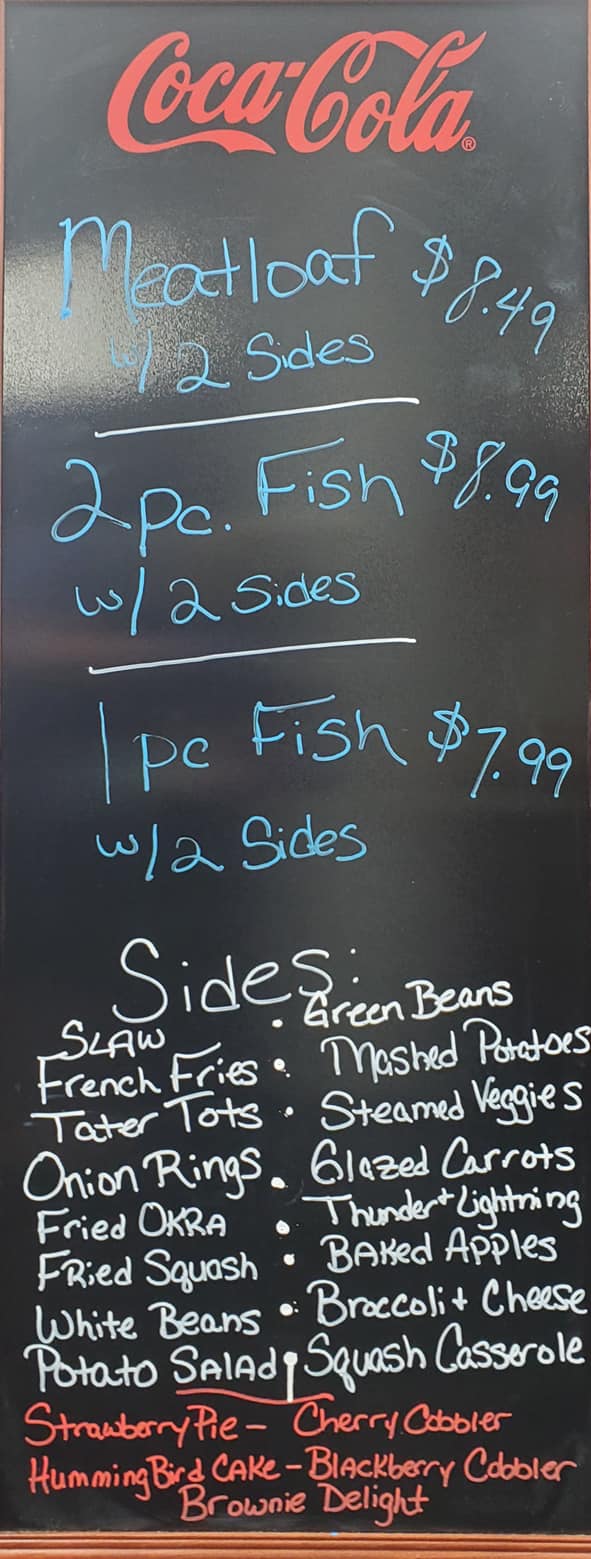 Coca-Cola®
Meatloaf $8.49
w/ 2 Sides
2 pc. Fish $8.99
w/ 2 Sides
1 pc Fish $7.99
w/ 2 Sides
Sides:
SLAW • Green Beans
French Fries • Mashed Potatoes
Tater Tots • Steamed Veggies
Onion Rings • Glazed Carrots
Fried OKRA • Thunder + Lightning
FRied Squash • BAKed Apples
White Beans • Broccoli + Cheese
Potato SALAd Squash Casserole
Strawberry Pie - Cherry Cobbler
Humming Bird CAKe - BLACKberry Cobbler
Brownie Delight